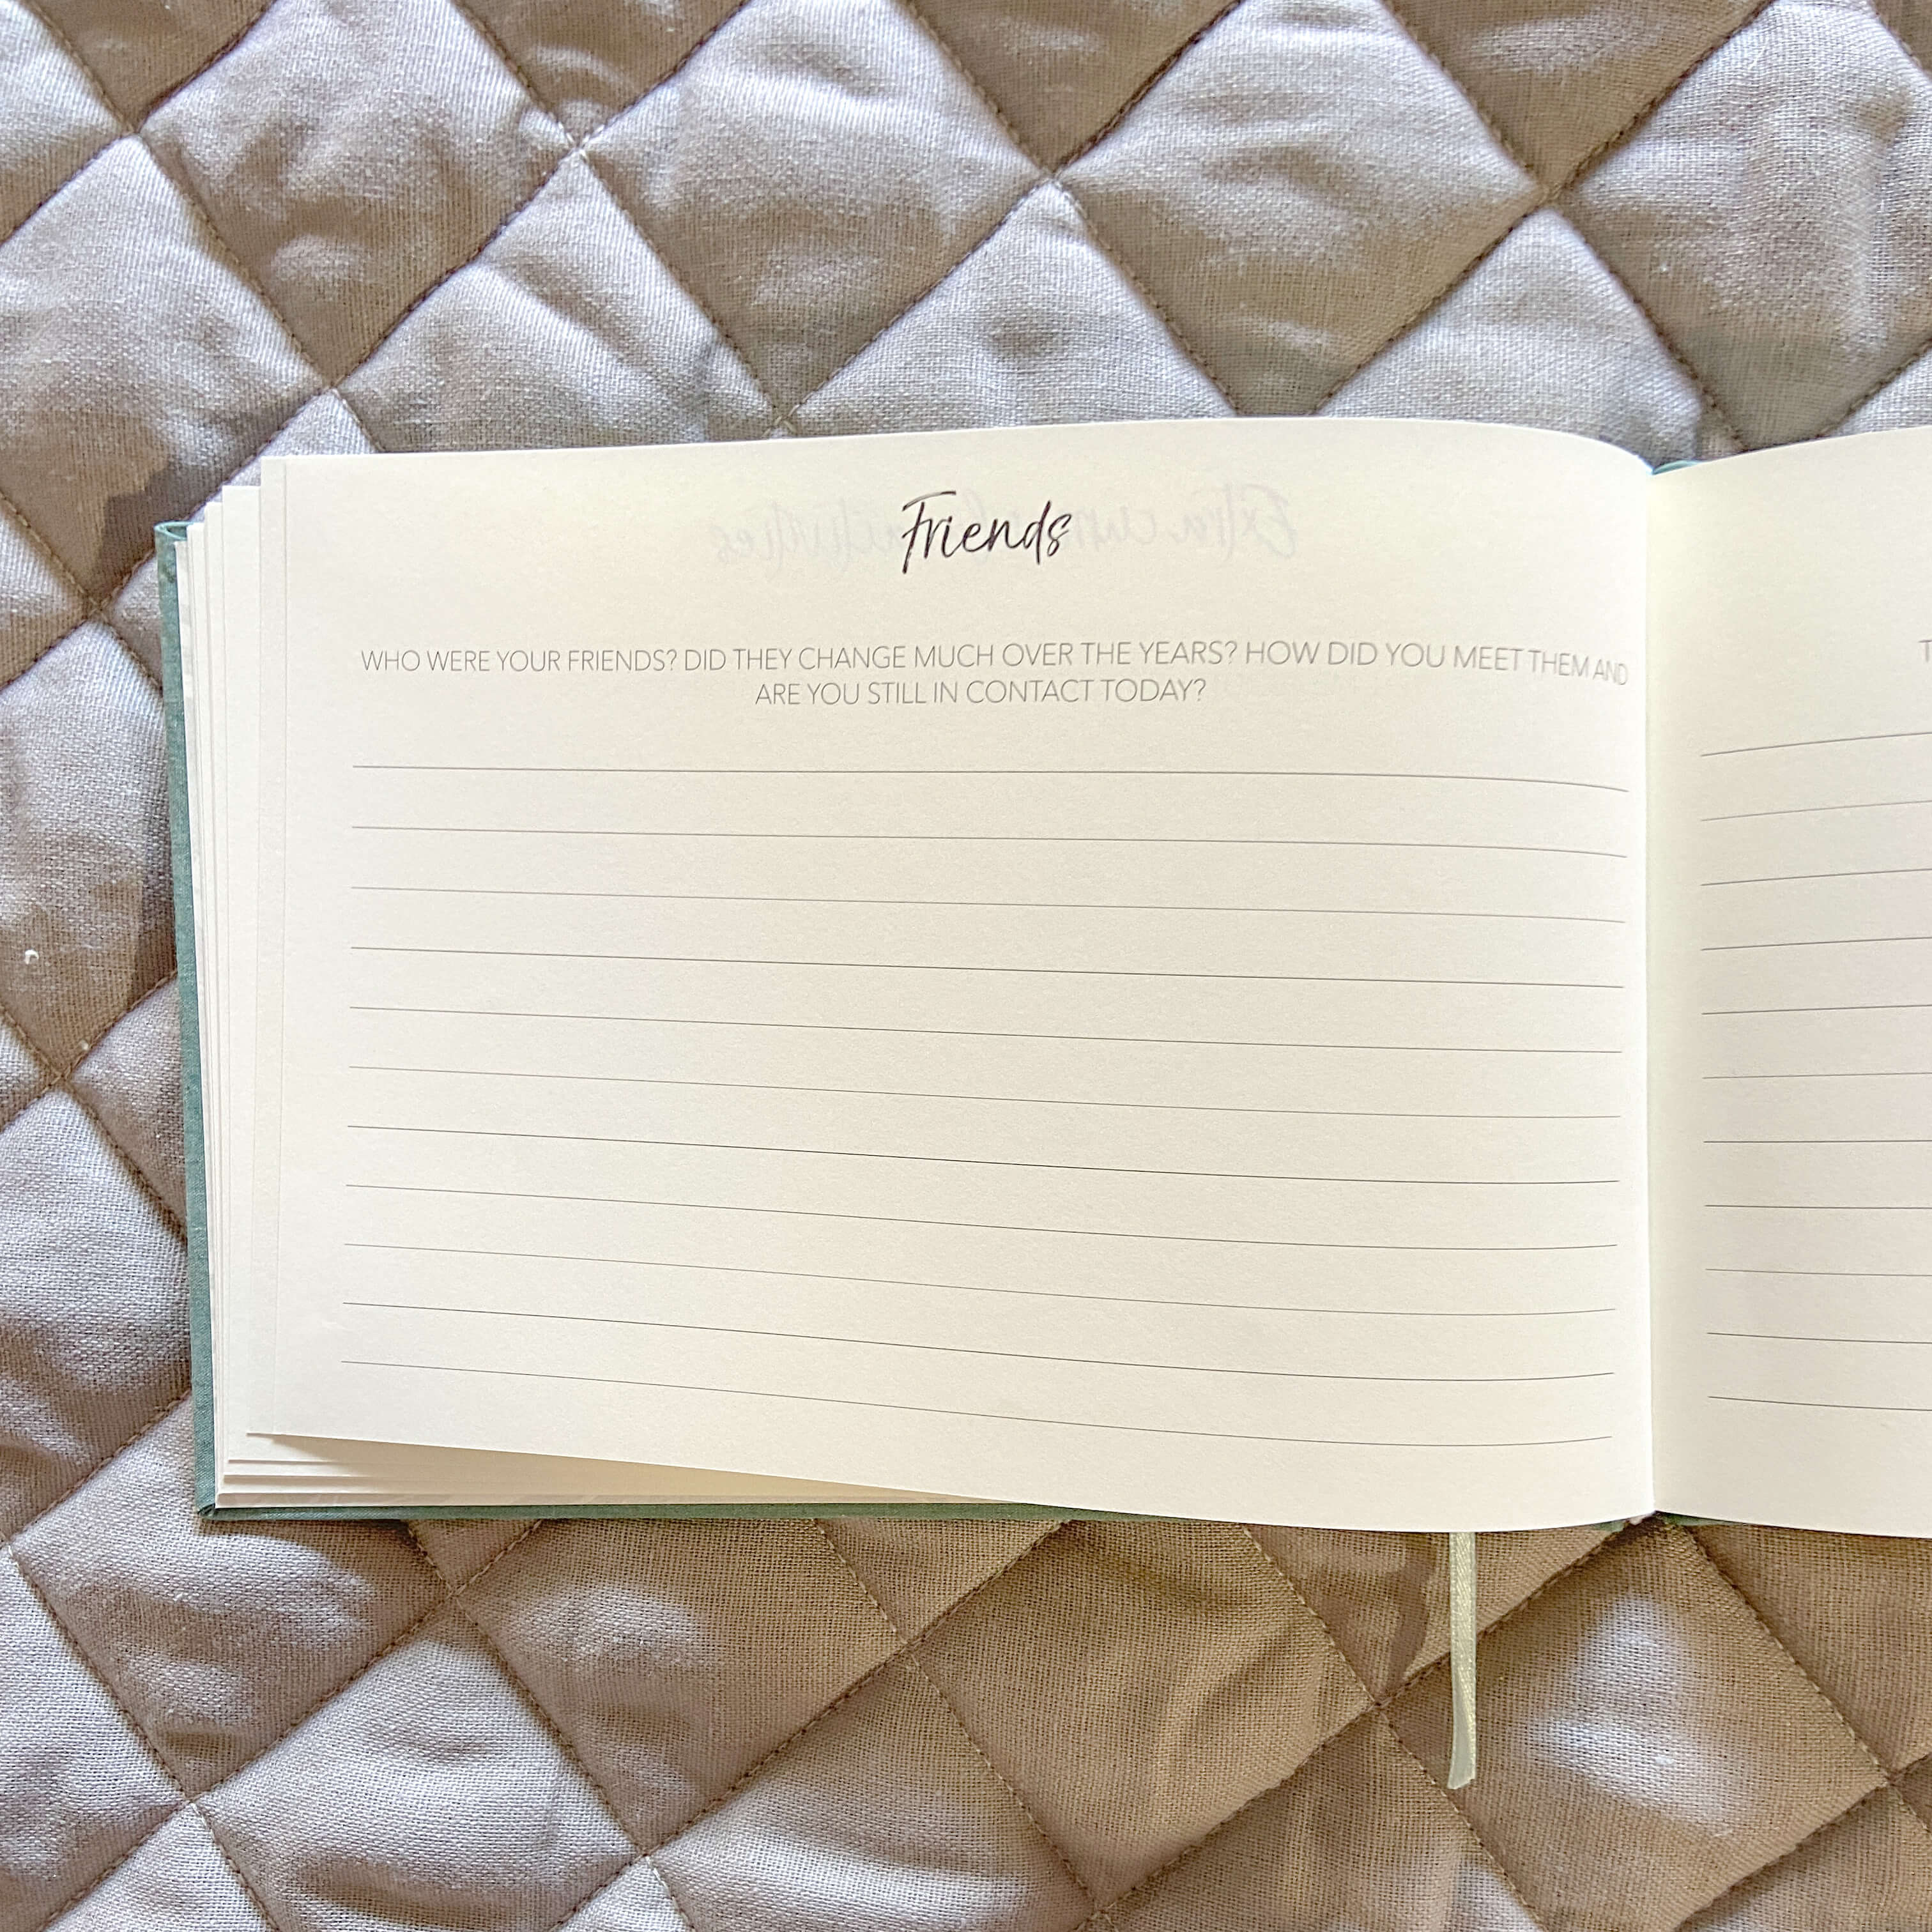 Friends
WHO WERE YOUR FRIENDS? DID THEY CHANGE MUCH OVER THE YEARS? HOW DID YOU MEET THEM AND
ARE YOU STILL IN CONTACT TODAY?